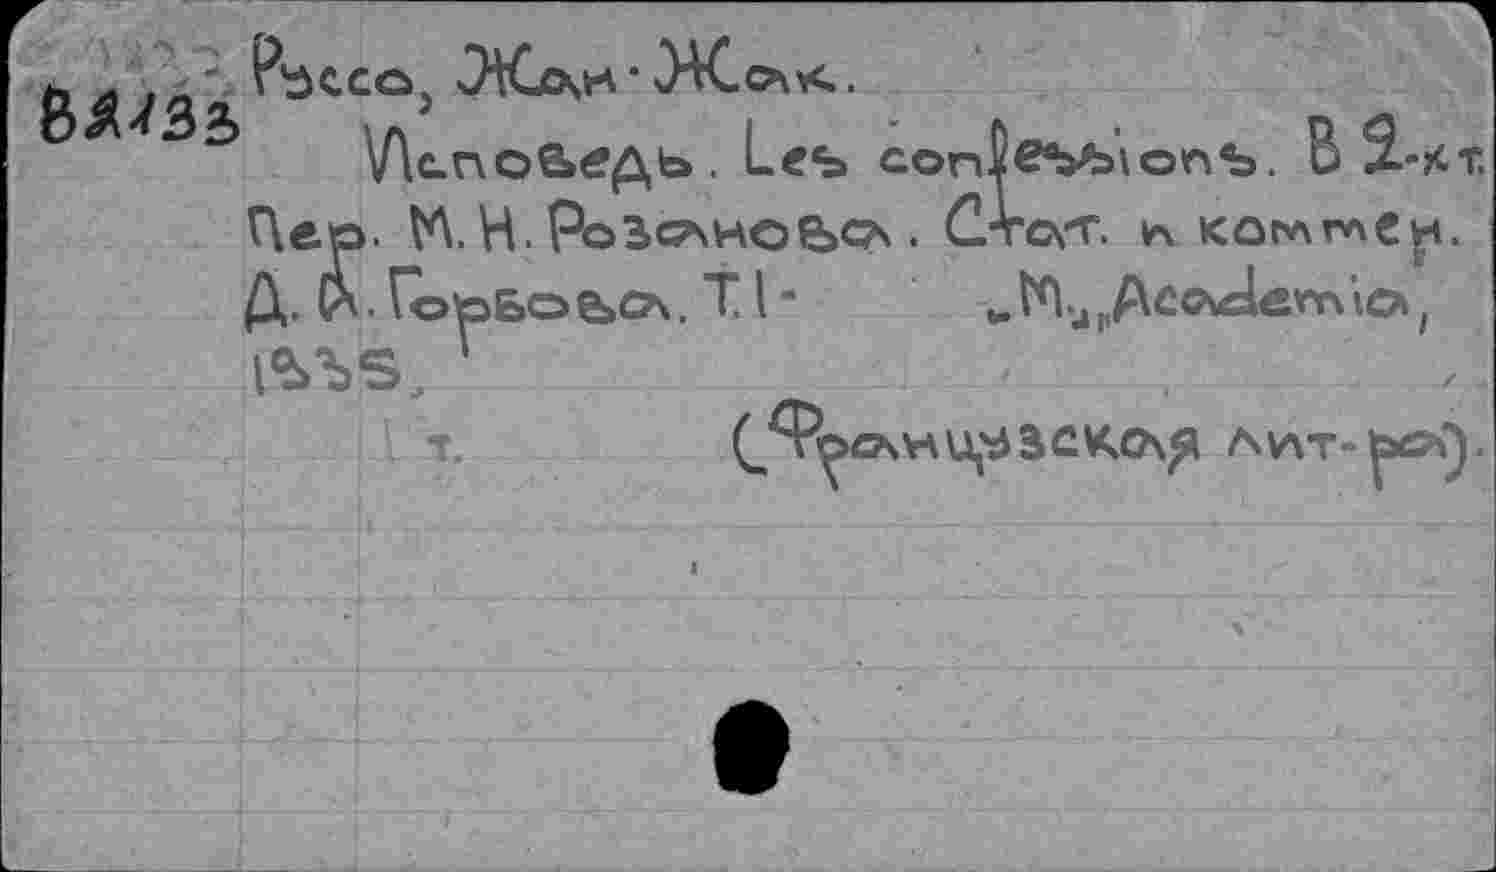 Руссо, Жан-Жак.
Исповедь. Les confessions. В 2-х т.
Пер. М.Н. Розанова. Стат. и коммен.
Д.А. Горбова. Т.1-
М., "Academia",
1935.
т. (Французская лит-ра).